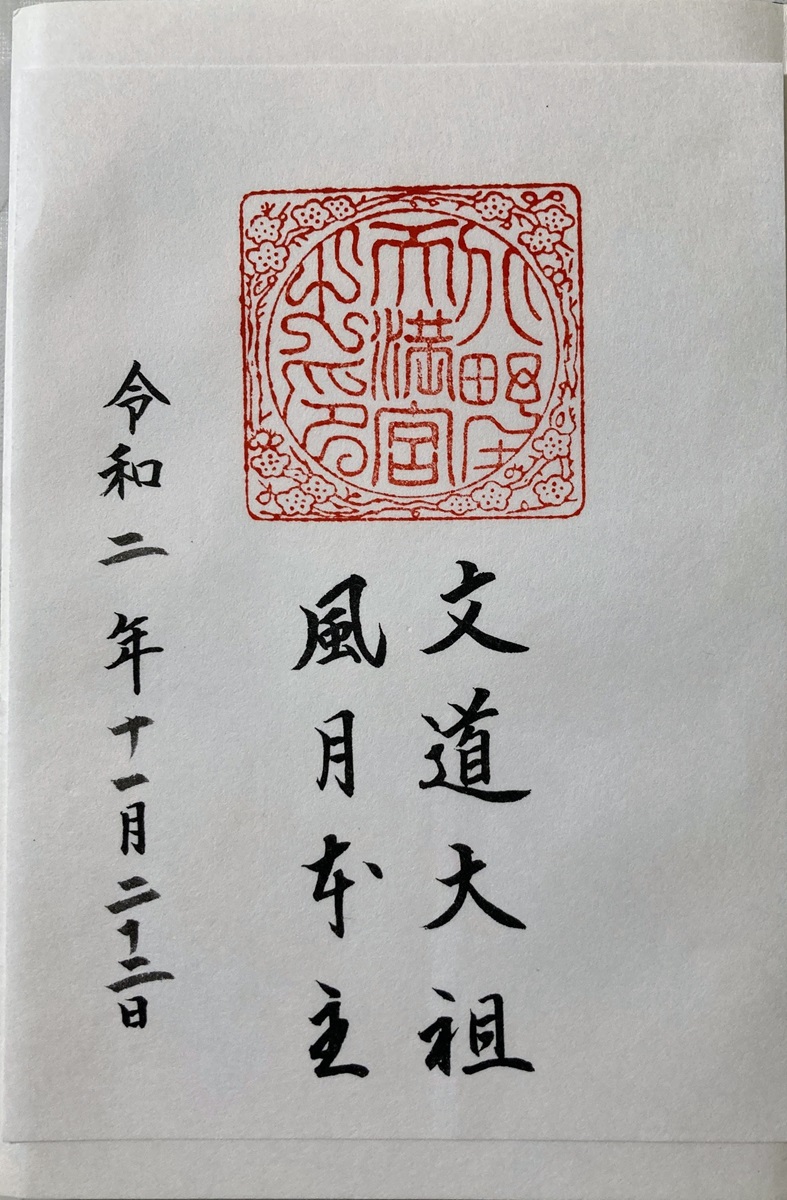 天満宮
之印
文道大祖
風月本主
令和二年十一月二十二日